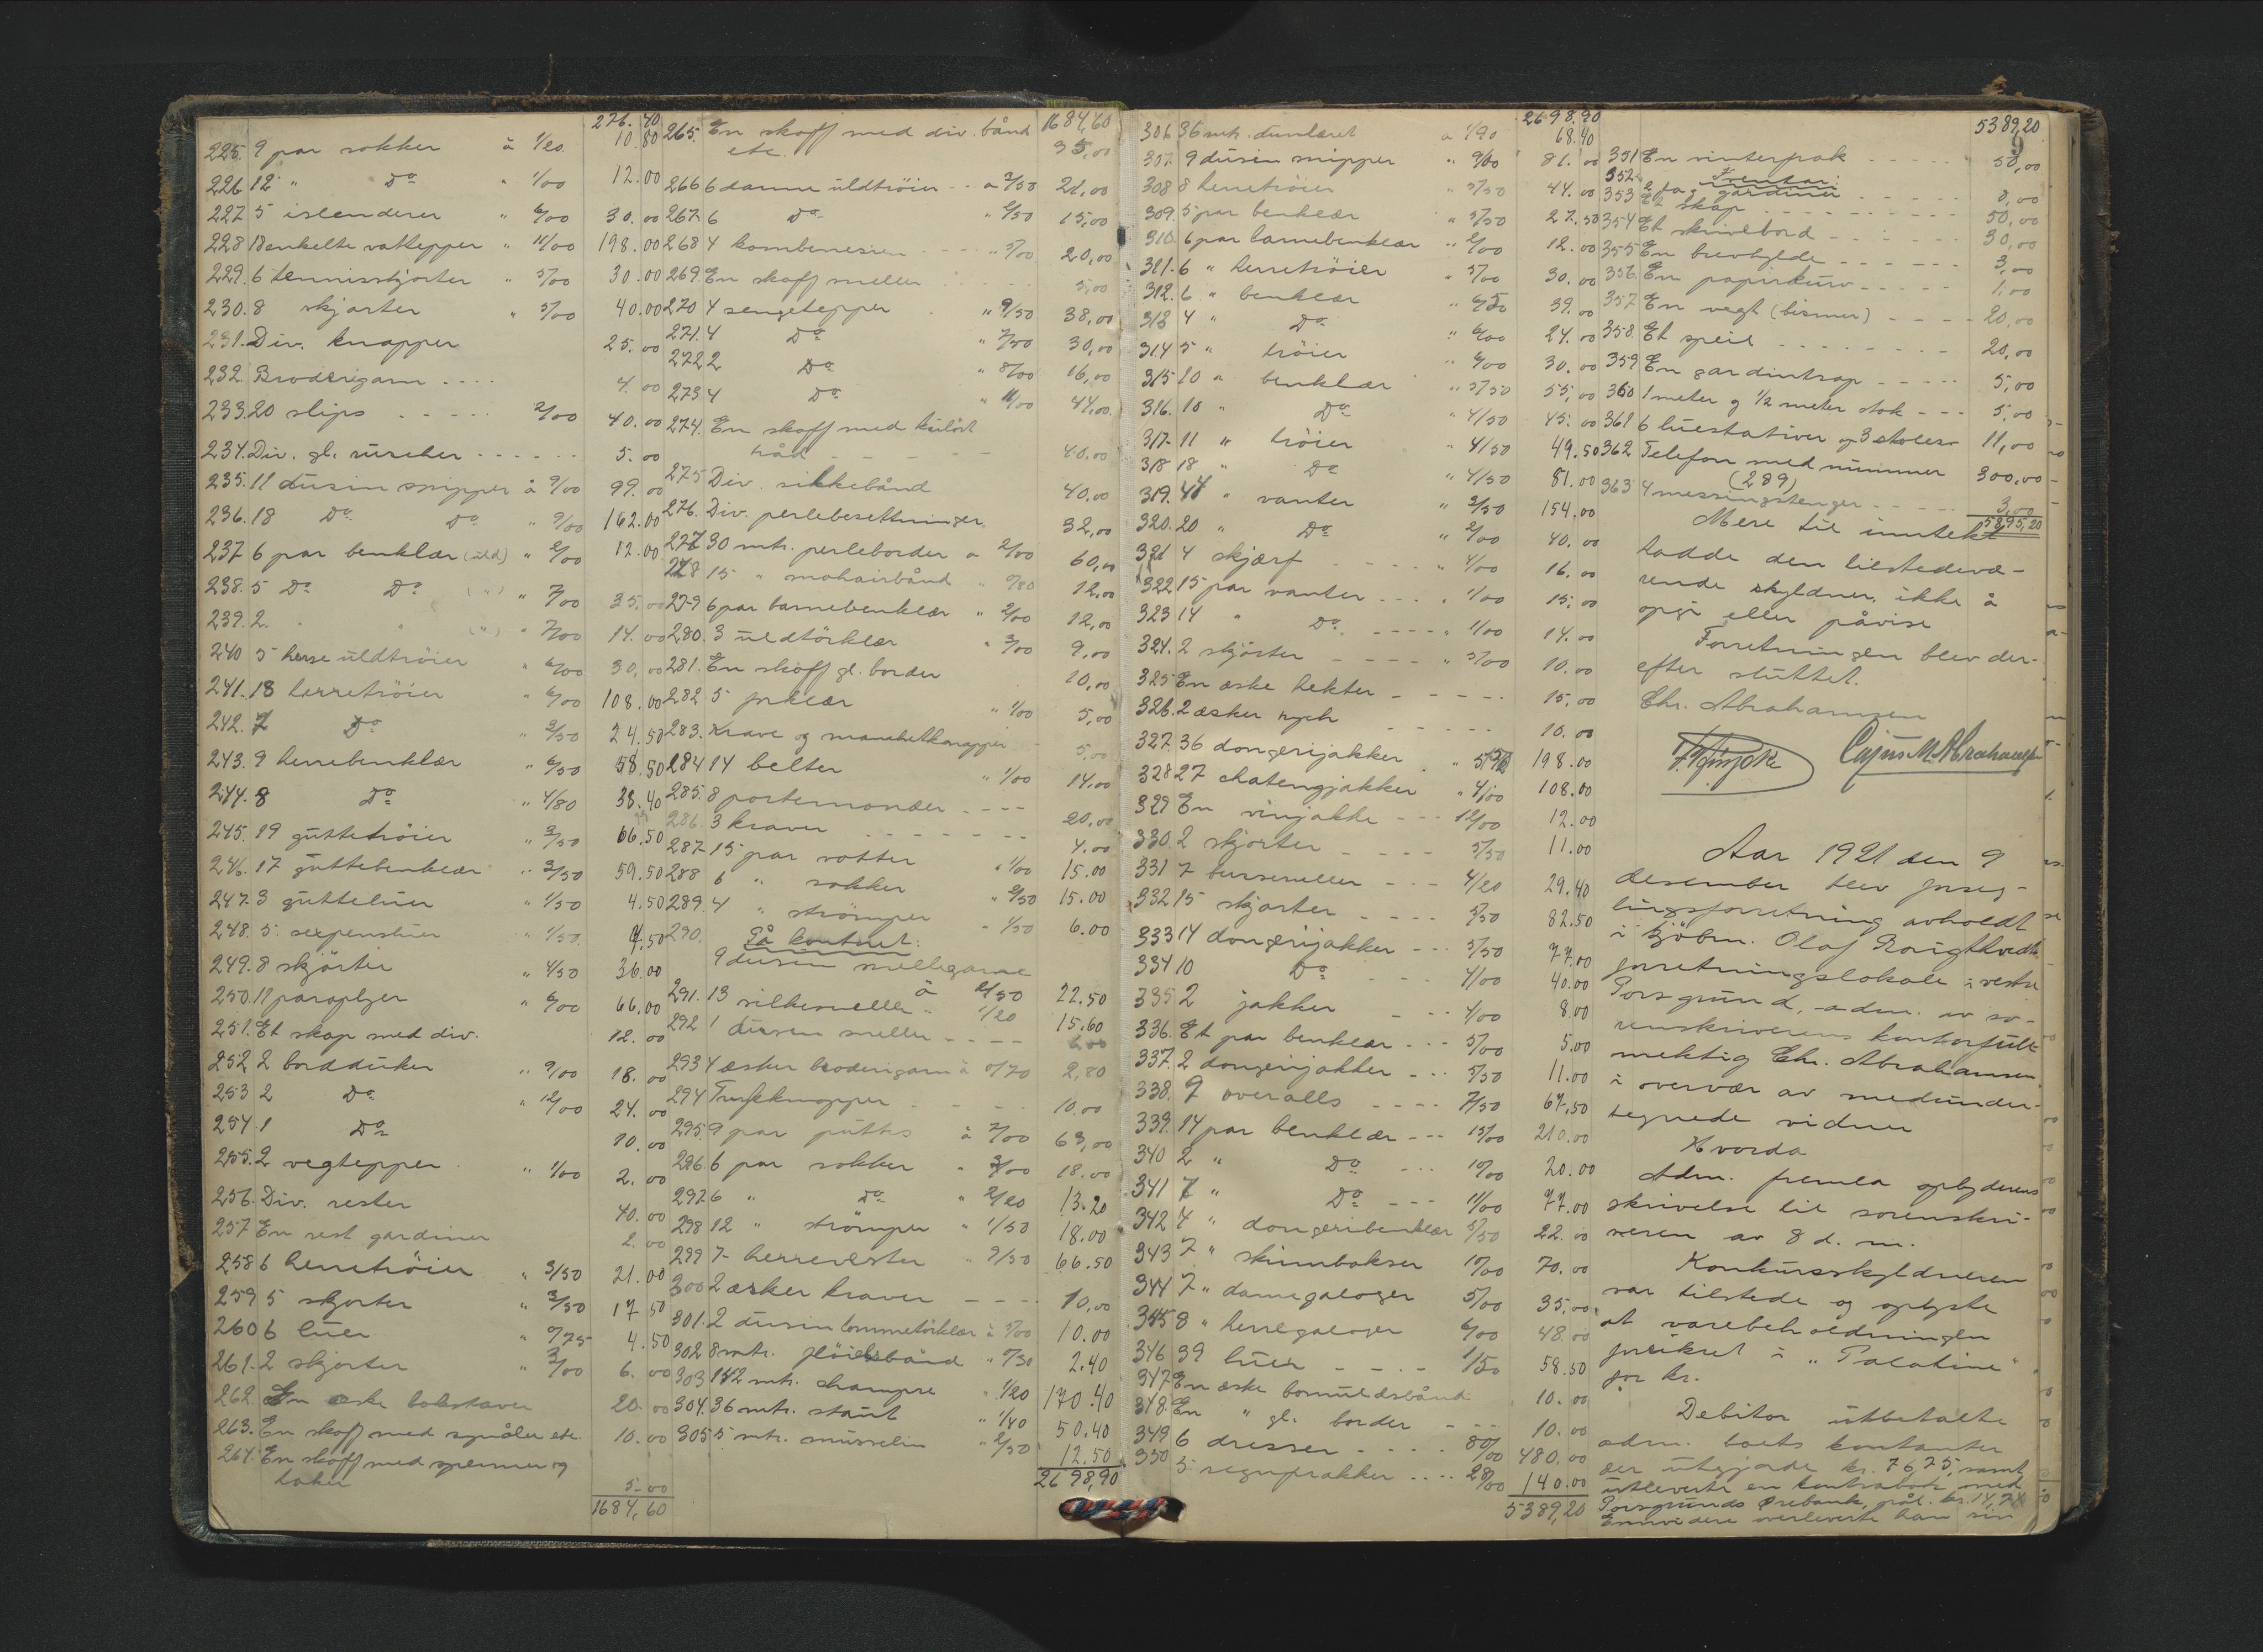 276.40
225. 9 par sokker à 1/20 10.80
226 12 " Do " 1/00 12.00
227 5 islenderer " 6/00 30.00
228 18 enkelte vattepper " 11/00 198.00
229. 6 tennisskjorter " 5/00 30.00
230. 8 skjorter " 5/00 40.00
231. Div. knapper 25.00
232. Broderigarn .... 4.00
233. 20 slips ..... 2/00 40.00
234. Div. gl. ruscher ...... 5.00
235. 11 dusin snipper à 9/00 99.00
236. 18 Do Do " 9/00 162.00
237 6 par benklær (uld) " 2/00 12.00
238. 5 Do Do (") " 7/00 35.00
239. 2. " " (") " 7/00 14.00
240 5 herre uldtröier " 6/00 30.00
241. 18 herretröier " 6/00 108.00
242. 7 Do " 3/50 24.50
243. 9 herrebenklær " 6/50 58.50
244. 8 Do " 4/80 38.40
245. 19 guttetröier " 3/50 66.50
246. 17 guttebenklær " 3/50 59.50
247. 3 gutteluer " 1/50 4.50
248. 5 sixpensluer " 1/50 7.50
249. 8 skjörter " 4/50 36.00
250. 11 paraplyer " 6/00 66.00
251. Et skap med div. 12.00
252 2 bordduker " 9/00 18.00
253 2 Do " 12/00 24.00
254 1 Do 10.00
255. 2 vegtepper " 1/00 2.00
256. Div. rester 40.00
257 En rest gardiner 2.00
258 6 herretröier " 3/50 21.00
259 5 skjorter " 3/50 17.50
260 6 luer " 0/75 4.50
261. 2 skjorter " 3/00 6.00
262. En æske bokstaver 20.00
263. En skoff med synåler etc. 10.00
264. En skoff med spenner og
haker 5.00
1684,60
1684,60
265. En skoff med div. bånd
etc. 35,00
266 6 dame uldtröier .. a 3/50 21,00
267. 6 Do " 2/50 15,00
268 4 kombenesen " 5/00 20,00
269. En skoff meller 5,00
270 4 sengetepper " 9/50 38,00
271. 4 Do " 7/50 30,00
272 2 Do " 8/00 16,00
273 4 Do " 11/00 44,00
274. En skoff med kulört
tråd ----- 40.00
275 Div. silkebånd 40,00
276. Div. perlebesettninger 32,00
277 30 mtr. perleborder a 2/00 60,00
278 15 " mohairbånd " 0/80 12,00
279 6 par barnebenklær " 2/00 12,00
280. 3 uldtörklær " 3/00 9,00
281. En skoff gl. border 20,00
282 5 forklær " 1/00 5,00
283. Krave og manchetknapper 5,00
284 14 belter " 1/00 14,00
285. 8 portemonæer ---- 20,00
286. 3 kraver ------ 4.00
287 15 par votter " 1/00 15.00
288 6 " sokker " 2/50 15.00
289. 4 " strömper " 1/50 6.00
290. På kontoret:
9 dusin mellegarne
à 2/50 22.50
291. 13 silkesneller " 1/20 15.60
292 1 dusin sneller ----
293 4 æsker broderigarn à 0/70 2,80
294 Trykknapper ---- 10.00
295 9 par puttis à 7/00 63,00
296 6 par sokker " 3/00 18.00
297 6 " Do " 2/20 13.20
298 12 " strömper " 1/50 18.00
299 7 herrevester " 9/50 66.50
300 2 æsker kraver ---- 10,00
301. 2 dusin lommetörklær à 5/00 10.00
302 8 mtr. flöielsbånd " 0/30 2.40
303 142 mtr. " 1/20 170.40
304. 36 mtr. stout " 1/40 50.40
305 5 mtr. musselin " 2/50 12.50
2698,90
2698,90
306 36 mtr. dunlæret a 1/90 68.40
307. 9 dusin snipper " 9/00 81.00
308 8 herretröier " 5/50 44.00
309. 5 par benklær " 5/50 27.50
310. 6 par barnebenklær " 2/00 12.00
311. 6 " herretröier " 5/00 30.00
312. 6 " benklær " 6/50 39.00
313 4 " Do " 6/00 24.00
314 5 " tröier " 6/00 30.00
315 10 " benklær " 5/50 55,00
316. 10 " Do " 4/50 45.00
317. 11 " tröier " 4/50 49.50
318 18 " Do " 4/50 81.00
319. 44 " vanter " 3/50 154.00
320. 20 " Do " 2/00 40.00
321 4 skjærf ---- " 4/00 16.00
322 15 par vanter --- " 1/00 15.00
323 14 " Do ---- " 1/00 14.00
324. 2 skjörter ---- " 5/00 10.00
325 En æske hekter ----- 15.00
326. 2 æsker rych ----- 10.00
327. 36 dongerijakker . " 5/50 198.00
328 27 chatengjakker " 4/00 108.00
329 En vinjakke --- 12/00 12.00
330. 2 skjorter ---- 5/50 11.00
331 7 busseruller --- 4/20 29.40
332 15 skjorter ---- 5/50 82.50
333 14 dongerijakker --- 5/50 77.00
334 10 Do -- 4/00 40.00
335 2 jakker --- 4/00 8.00
336. Et par benklær --- 5/00 5.00
337. 2 dongerijakker --- 5/50 11.00
338. 9 overalls ---- 7/50 67.50
339. 14 par benklær --- 15/00 210.00
340 2 " Do --- 10/00 20.00
341 7 " Do --- 11/00 77.00
342 4 " dongeribenklær 5/50 22.00
343 7 " skinnbokser 10/00 70.00
344 7 " damegaloger 5/00 35.00
345 8 " herregaloger 6/00 48.00
346 39 luer ---- 1/50 58.50
347 En æske bomuldsbånd 10.00
348. En " gl. border --- 10.00
349 6 dresser ---- 80/00 480.00
350 5 regnfrakker .... 28/00 140.00
5389,20
5389,20
9
351 En vinterfrak ----- 50,00
Inventar:
352. 2 fag gardiner ----- 8,00
353 Et skap ---------- 50,00
354 Et skrivebord ------ 30,00
355 En brevhylde ------ 3,00
356. En papirkurv ----- 1,00
357 En vegt (bismer) ---- 20,00
358. Et speil -------- 20,00
359 En gardintrap ----- 5,00
360 1 meter og 1/2 meter stok --- 5,00
361 6 luestativer og 3 stoler 11,00
362 Telefon med nummer
(289) 300,00
363 4 messingstenger ----- 3,00
5895,20
Mere til inntekt
hadde den tilstedevæ-
rende skyldner ikke å
opgi eller påvise
Forretningen blev der-
efter sluttet.
Chr. Abrahamsen
Cajus M. Abrahamsen
Aar 1921 den 9
desember blev forseg-
lingsforretning avholdt
i kjöbm. Olaf
forretningslokale i vestre
Porsgrund, adm. av so-
renskriverens kontorfuld-
mektig Chr. Abrahamsen
i overvær av medunder-
tegnede vidner
Hvorda
Adm. fremla opbyderens
skrivelse til sorenskri-
veren av 8 d. m.
Konkursskyldneren
var tilstede og oplyste
at varebeholdningen
forsikret i "Palatine"
for kr.
Debitor utbetalte
adm. boets kontanter
der utgjorde kr. 76 75, samt
utleverte en kontrabok med
Porsgrunds Örebank, pål. kr. 14,74
Ennvidere overleverte han sin